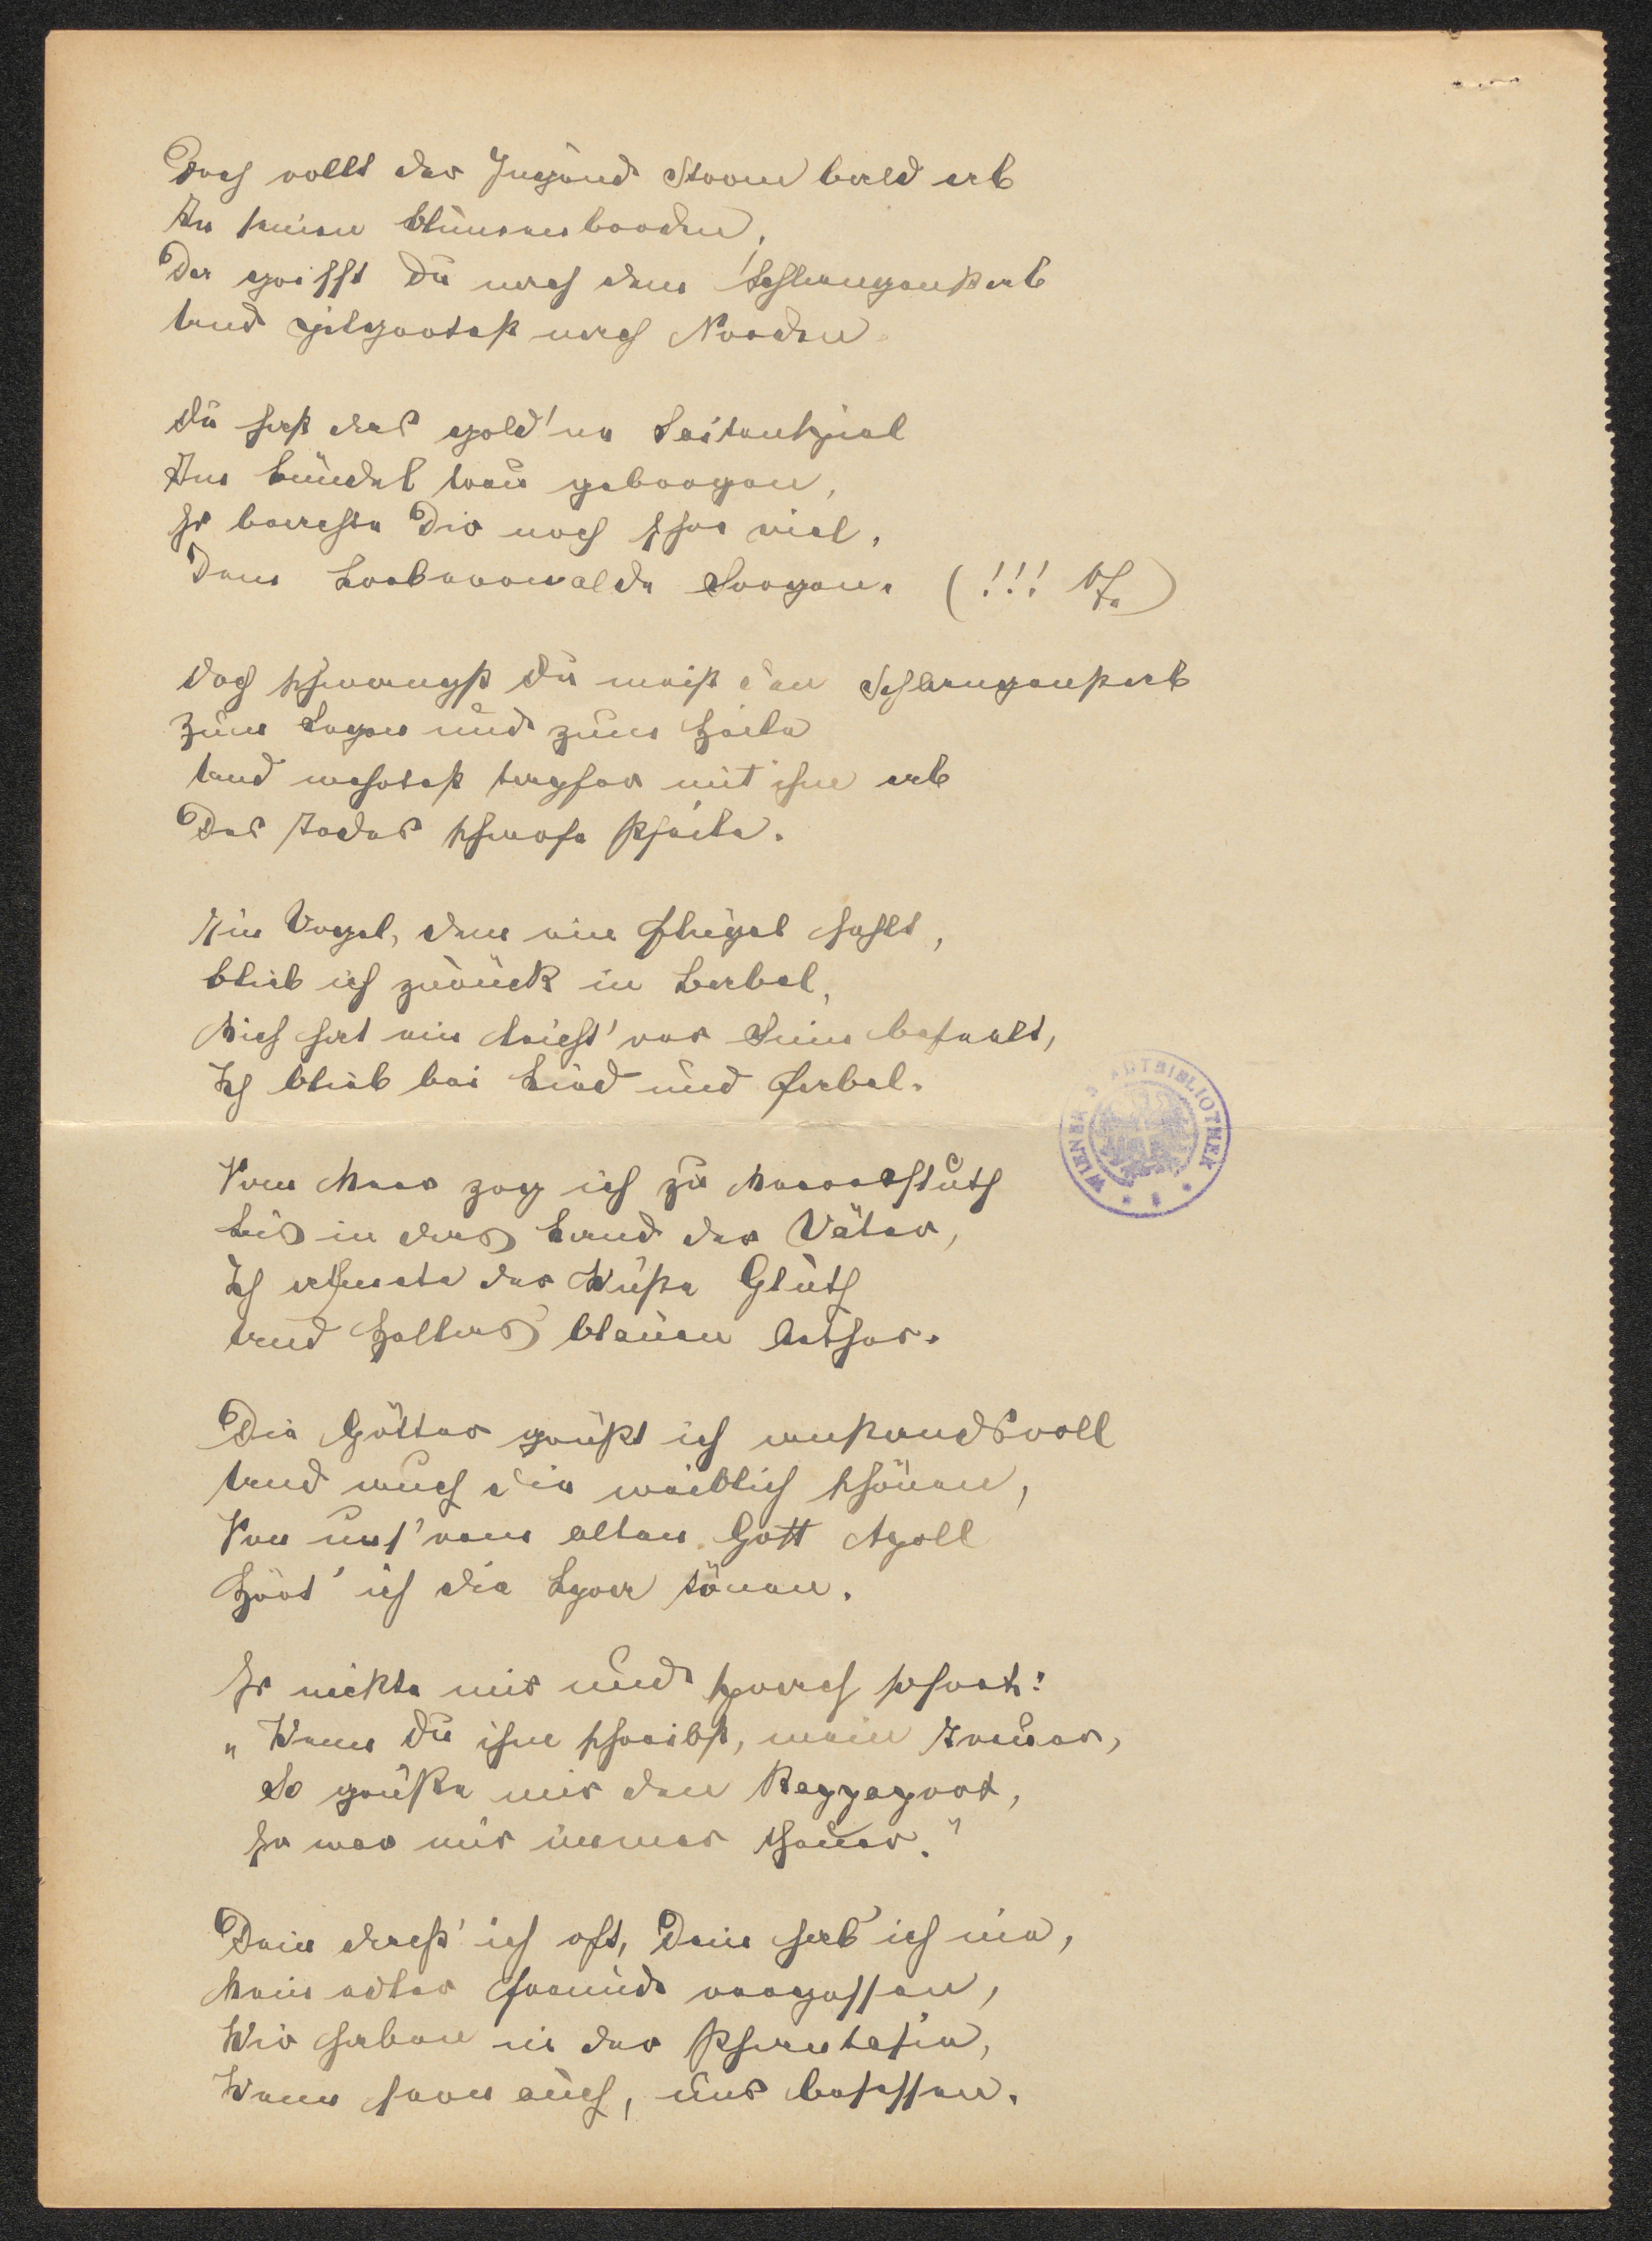 Doch rollt der Jugend Strom bald ab
An seinen Blumenborden,
Da griffst Du nach dem Schlangenstab
Und pilgertest nach Norden.
Du hast das gold'ne Saitenspiel
Im Bündel treu geborgen,
Er brachte Dir noch sehr viel,
Dem Lorbeerwalde Sorgen. (!!!
Doch schwangst Du meist den Schlangenstab
Zum Segen und zum Heile
Und wehrtest tapfer mit ihm ab
Des Todes schwarze Pfeile.
Ein Vogel, dem ein Flügel fehlt,
blieb ich zurück in Babel,
Mich hat ein leicht'rer Sinn beseelt,
Ich blieb bei Lied und Fabel.
Vom Meer zog ich zu Meeresfluth
Bis in das Land der Väter,
Ich athmete der Wüste Gluth
Und Hellas blauen Aether.
Die Götter grüßt ich anstandsvoll
Und auch die weiblich schönen,
Von uns'rem alten Gott Apoll
Hört' ich die Lyra tönen.
Er nickte mir und sprach sofort:
„Wenn Du ihm schreibst, mein Treuer,
So grüße mir den Rappaport,
Er war mir immer theuer."
Dein dacht' ich oft, Dein hab' ich nie,
Mein edler Freund vergessen,
Wir haben in der Phantasie,
Wenn fern auch, uns besessen.
WIENER STADTBIBLIOTHEK